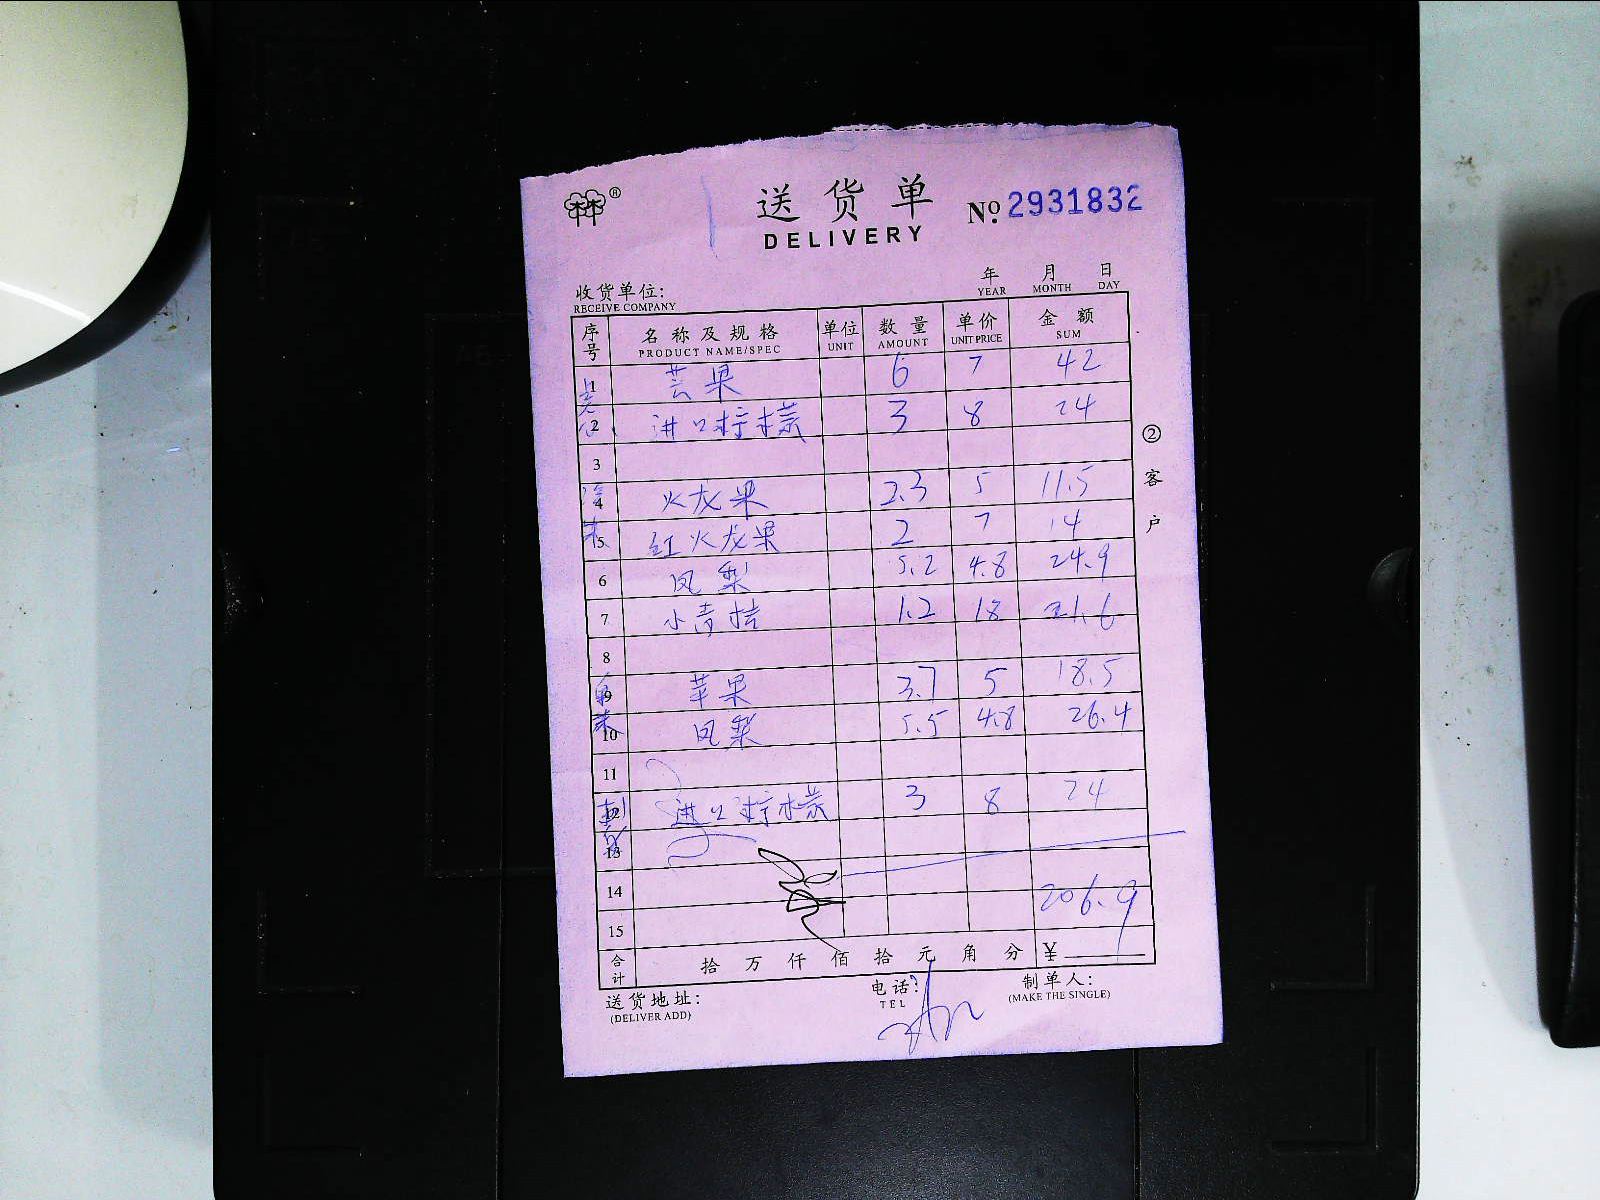 ®
送货单
DELIVERY
№ 2931832
收货单位:
RECEIVE COMPANY
年 月 日
YEAR MONTH DAY
序号 名称及规格 单位 数量 单价 金额
PRODUCT NAME/SPEC UNIT AMOUNT UNIT PRICE SUM
1 芸果 6 7 42
2 进口柠檬 3 8 24
3
4 火龙果 2.3 5 11.5
5 红火龙果 2 7 14
6 凤梨 5.2 4.8 24.9
7 小青桔 1.2 18 21.6
8
9 苹果 3.7 5 18.5
10 凤梨 5.5 4.8 26.4
11
12 进口柠檬 3 8 24
13
14
206.9
15
合计 拾 万 仟 佰 拾 元 角 分 ¥
②客户
送货地址:
(DELIVER ADD)
电话:
TEL
制单人:
(MAKE THE SINGLE)